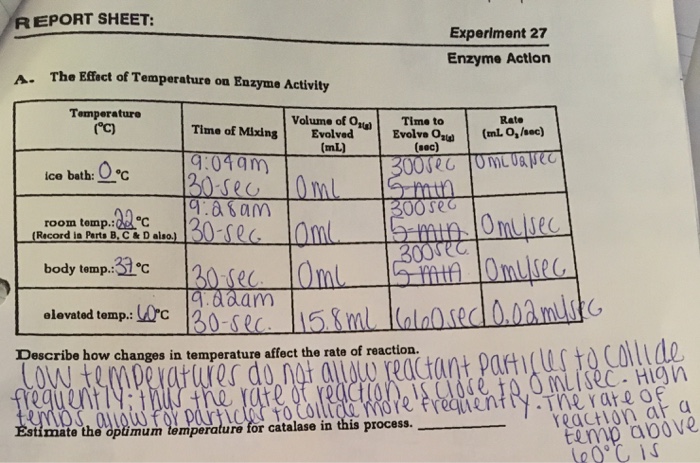 REPORT SHEET:
Experiment 27
Enzyme Action
A. The Effect of Temperature on Enzyme Activity
Temperature (°C)
Time of Mixing
Volume of O2(g) Evolved (mL)
Time to Evolve O2(g) (sec)
Rate (mL O2/sec)
ice bath: 0 °C
9:04am
30-sec
0ml
300sec
5 min
0mL O2/sec
room temp.: 22 °C
(Record in Parts B, C & D also.)
9:28am
30-sec.
0ml
300sec
5 min
0mL/sec
body temp.: 37 °C
30-sec.
0ml
300sec
5 min
0mL/sec
elevated temp.: 60°C
9:22am
30-sec.
15.8ml
660sec
0.02mL/sec
Describe how changes in temperature affect the rate of reaction.
Low temperatures do not allow reactant particles to collide
frequently; thus the rate of reaction is close to 0mL/sec. High
temps allow for particles to collide more frequently. The rate of
reaction at a
temp above
60°C is
Estimate the optimum temperature for catalase in this process.